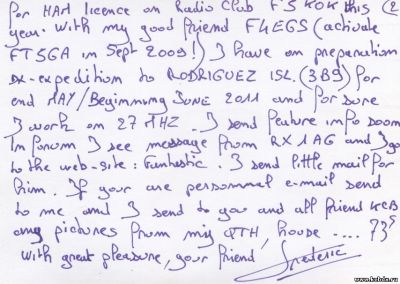 For HAM licence on Radio Club F5KOK this (2
year. With my good friend F4EGS (activate
FT5GA in Sept 2009!) I have on preparation
DX-expedition to RODRIGUEZ ISL. (3B9) for
end MAY/Beginning June 2011 and for sure
I work on 27 MHZ. I send feature info soon
In forum I see message from RX1AG and I go
to the web-site: Funtastic. I send little mail for
him. If your are personnal e-mail send
to me and I send to you and all friend KCB
any pictures from my QTH, house .... 73's
with great pleasure, your friend Frederic
www.kubda.ru